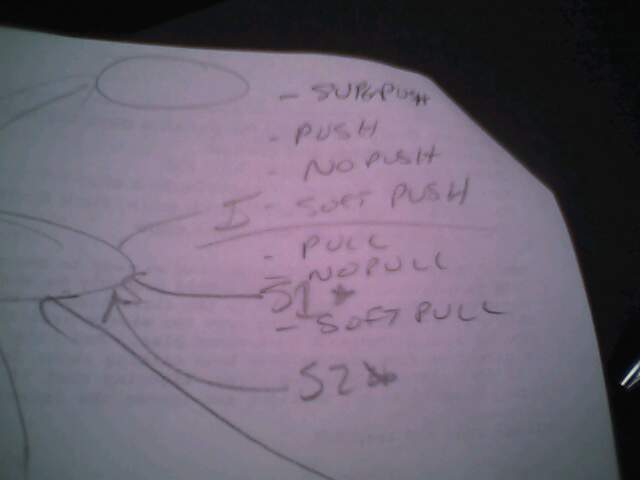 - SUPERPUSH
- PUSH
- NO PUSH
I - SOFT PUSH
- PULL
- NO PULL
S1
- SOFT PULL
S2